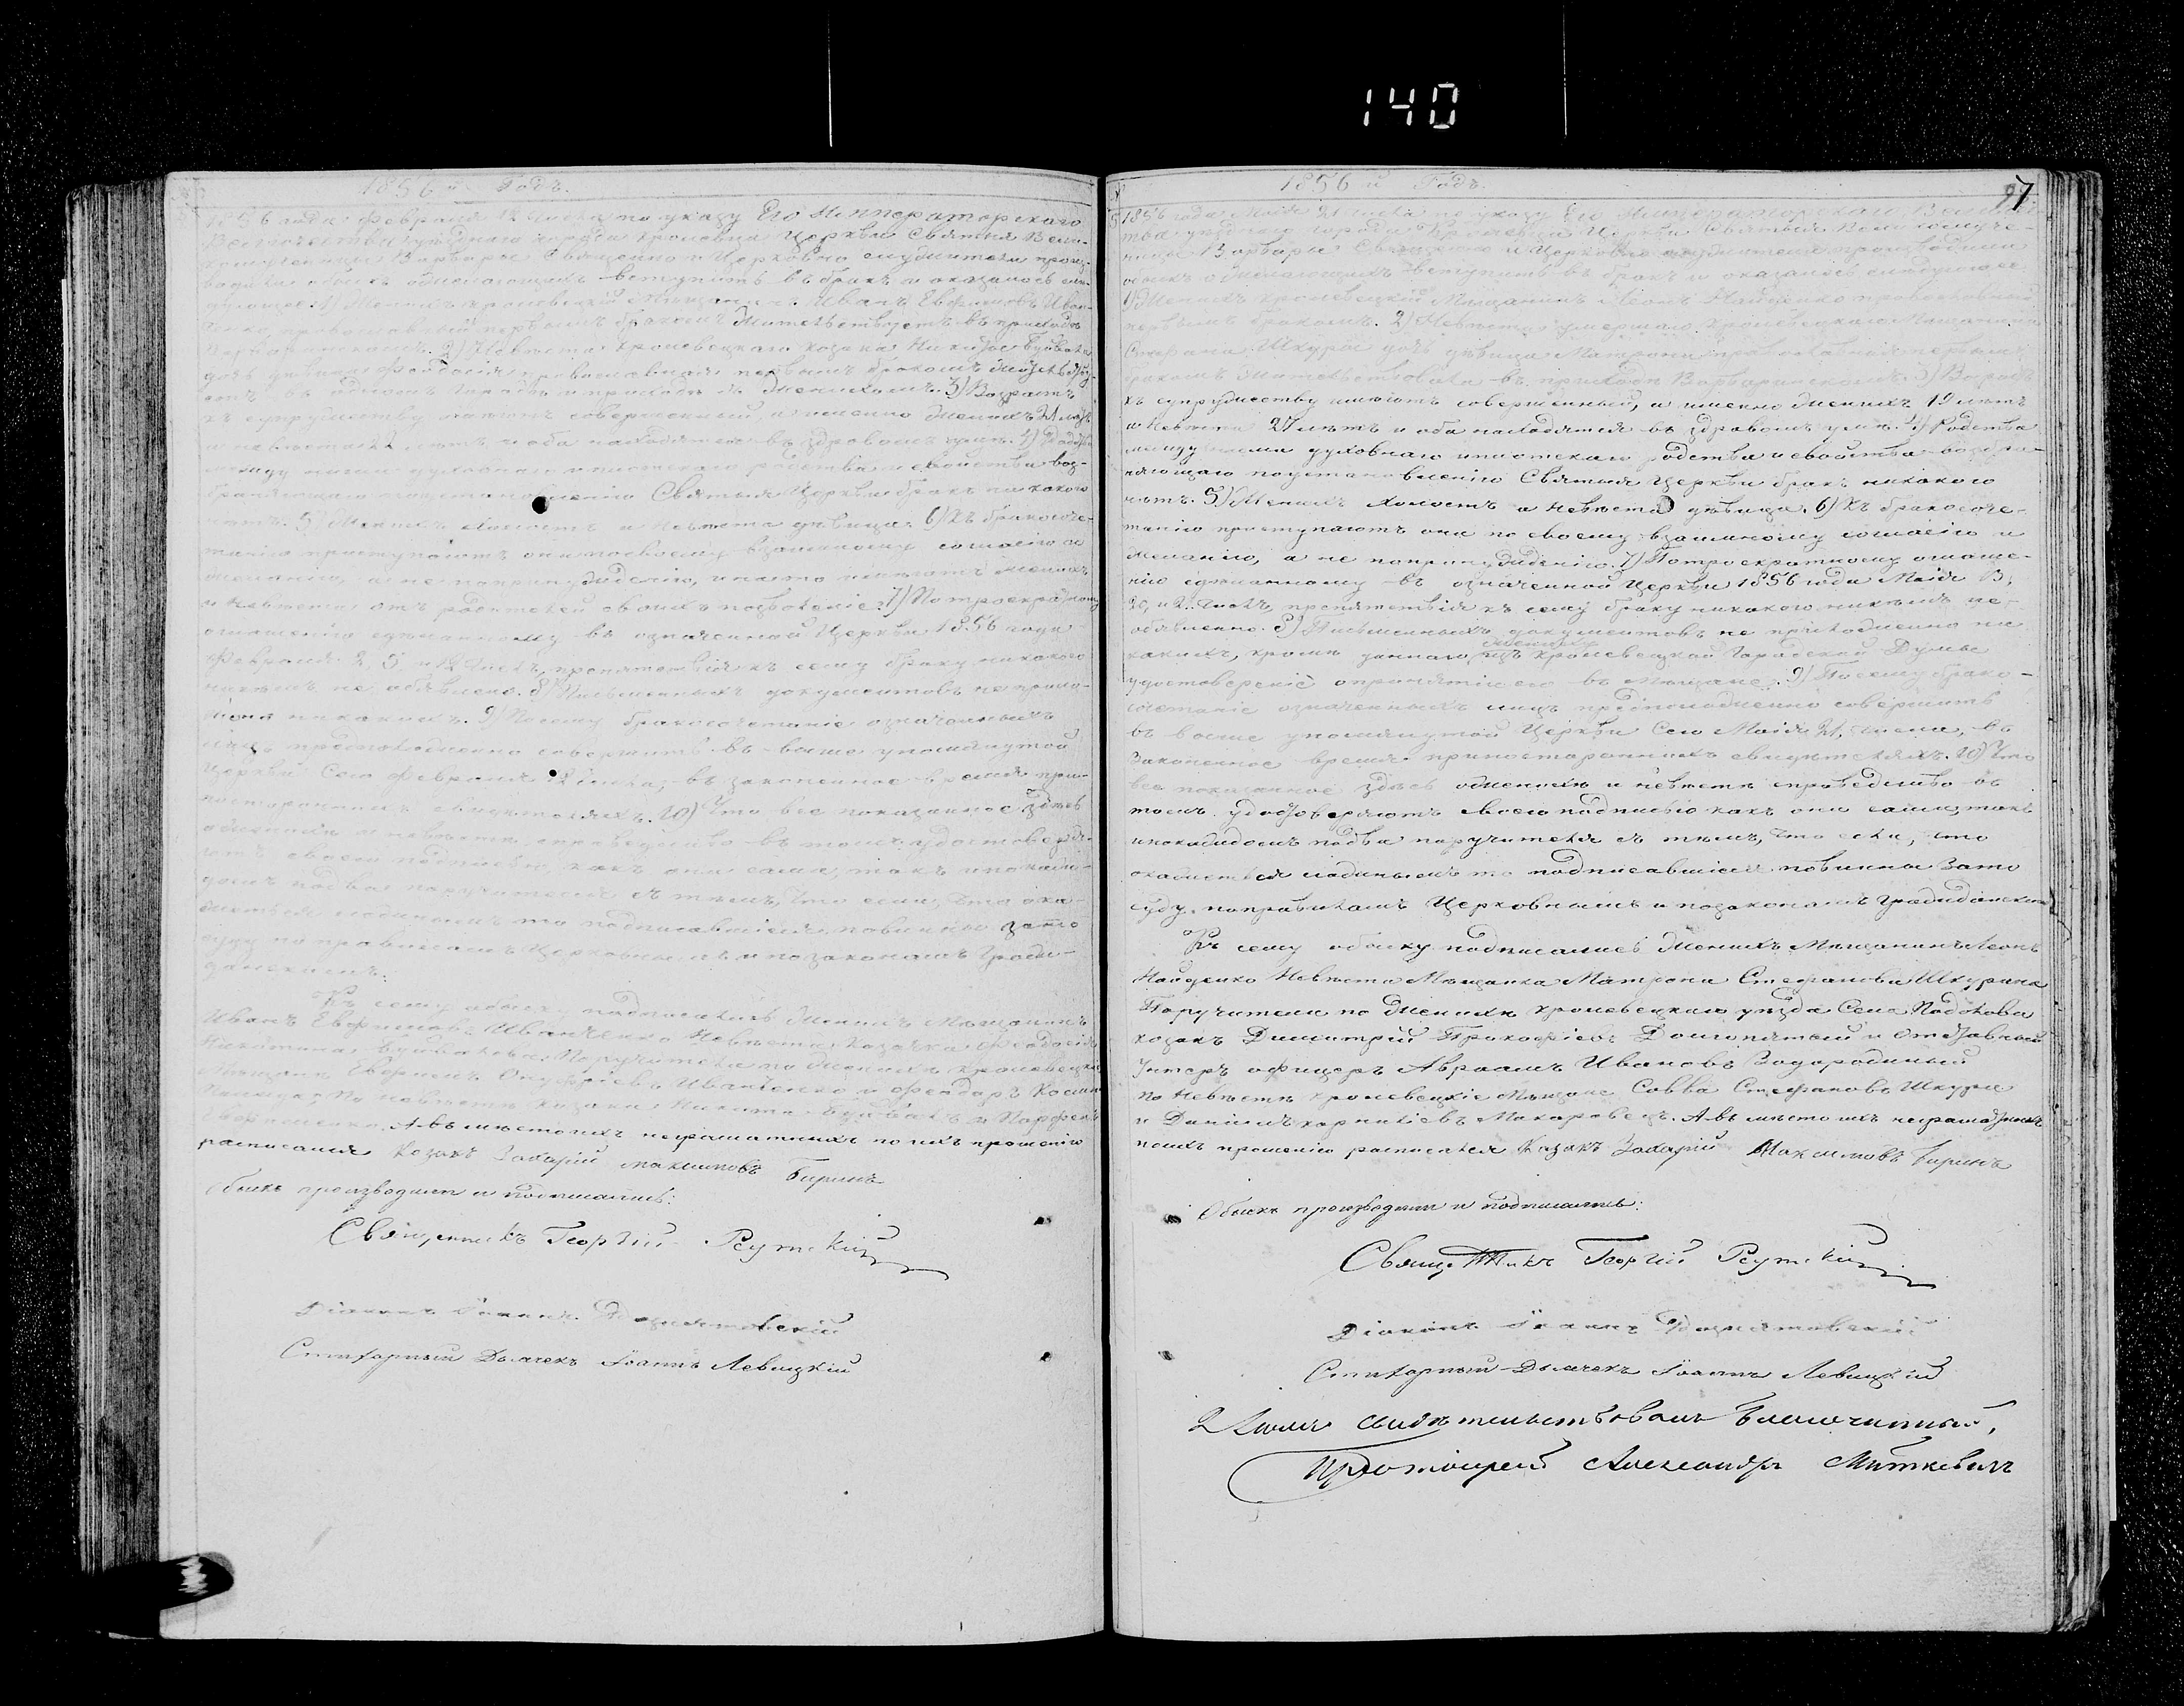 140
1856 й Годъ.
1856 года Февраля 12 числа по указу Его Императорскаго
Величества уѣзднаго города Кролевца Церкви Святыя Вели-
комученицы Варвары Священно и Церковно служители произ-
водили обыскъ о желающихъ вступить въ бракъ и оказалось слѣ-
дующее: 1) Женихъ кролевецкій Мѣщанинъ Иванъ Евфимовъ Иван-
ченко, православный первымъ бракомъ жительствуетъ въ приходѣ
Варваринскомъ. 2) Невѣста Кролевецкаго козака Никиты
дочь дѣвица Феодосія православная первымъ бракомъ
въ одномъ приходѣ съ женихомъ. 3) Возрастъ
къ супружеству имѣютъ совершенный, и именно женихъ 21 лѣтъ
и невѣста 22 лѣтъ, и оба находятся въ здравомъ умѣ. 4) Родства
между ними духовнаго и плотскаго родства и свойства воз-
браняющаго по установленію Святыя Церкви бракъ никакого
нѣтъ. 5) Женихъ холостъ а невѣста дѣвица. 6) Къ бракосоче-
танію приступаютъ они по своему взаимному согласію и
желанію, а не по принужденію, и на то имѣютъ женихъ
и невѣста отъ родителей своихъ позволеніе. 7) По троекратному
оглашенію сдѣланному въ означенной Церкви 1856 года
Февраля 2, 5 и 12 числъ, препятствія къ сему браку никакого
никѣмъ не объявлено. 8) Письменныхъ документовъ не прило-
жено никакихъ. 9) Посему бракосочетаніе означенныхъ
лицъ предположенно совершить въ выше упомянутой
Церкви Сего Февраля 12 числа, въ законенное время при
постороннихъ свидѣтеляхъ. 10) Что все показанное здѣсь
о женихѣ и невѣстѣ справедливо въ томъ удостоверя-
ютъ своею подписью какъ они сами, такъ и по каж-
домъ по два поручителя съ тѣмъ, что если, что ока-
жется ложнымъ то подписавшіеся повинны за то
суду по правиламъ Церковнымъ и по законамъ Граж-
данскимъ.
Къ сему обыску подписались Женихъ Мѣщанинъ
Иванъ Евфимовъ Иванченко Невѣста Козачка Феодосія
Никитина Поручители по Женихѣ Кролевецкіе
Мѣщане Евфимъ Онуфріевъ Иванченко и Феодоръ
По невѣстѣ козаки Никита
А вѣмѣсто ихъ неграматныхъ по ихъ прошенію
расписался Козакъ Захарій Максимовъ Биринъ
Обыскъ производили и подписались:
Священникъ Георгій Реутскій
Діаконъ Іоаннъ
Стихарный Дьячекъ Іоаннъ Левицкій
1856 й Годъ.
97
1856 года Маія 21 числа по указу Его Императорскаго Величес-
тва уѣзднаго города Кролевца Церкви Святыя Великомуче-
ницы Варвары Священно и Церковно служители производили
обыскъ о желающихъ вступить въ бракъ и оказалось слѣдующее
1) Женихъ кролевецкій Мѣщанинъ Леонъ Найденко православный
первымъ бракомъ. 2) Невѣста умершаго Кролевецкаго Мѣщанина
Стефана Шкуры дочь дѣвица Матрона православная первымъ
бракомъ жительствовала въ приходѣ Варваринскомъ. 3) Возрастъ
къ супружеству имѣютъ совершенный, и именно женихъ 19 лѣтъ
и Невѣста 21 лѣтъ и оба находятся въ здравомъ умѣ. 4) Родства
между ними духовнаго и плотскаго родства и свойства возбра-
няющаго по установленію Святыя Церкви бракъ никакого
нѣтъ. 5) Женихъ холостъ а Невѣста дѣвица. 6) Къ бракосоче-
танію приступаютъ они по своему взаимному согласію и
желанію, а не по принужденію. 7) По троекратному оглаше-
нію сдѣланному въ означенной Церкви 1856 года Маія 13,
20, и 21 числъ, препятствія къ сему браку никакого никѣмъ не
объявленно. 8) Письменныхъ документовъ не приложенно ни
какихъ, кромѣ даннаго жениху изъ Кролевецкой Городской Думы
удостовереніе о принятіи его въ Мѣщане. 9) Посему брако-
сочетаніе означенныхъ лицъ предположенно совершить
въ выше упомянутой Церкви Сего Маія 21, числа, въ
Законенное время при постороннихъ свидѣтеляхъ. 10) Что
все показанное здѣсь о женихѣ и невѣстѣ справедливо въ
томъ удостоверяютъ своею подписью какъ они сами, такъ
и по каждомъ по два поручителя съ тѣмъ, что если, что
окажеться ложнымъ то подписавшіеся повинны За то
суду по правиламъ Церковнымъ и по законамъ Гражданскимъ
Къ сему обыску подписались Женихъ Мѣщанинъ Леонъ
Найденко Невѣста Мѣщанка Матрона Стефанова Шкурина
Поручители по Женихѣ Кролевецкаго уѣзда Села Подолова
козакъ Димитрій Прокофіевъ Долгопятый и Отставный
Унтеръ офицеръ Авраамъ Ивановъ Загородный
По Невѣстѣ Кролевецкіе Мѣщане Савва Стефановъ Шкура
и Даніилъ Карпиліевъ Макаровецъ. А вѣмѣсто ихъ неграматныхъ
по ихъ прошенію расписался Козакъ Захарій Максимовъ Биринъ
Обыскъ производили и подписались:
Священникъ Георгій Реутскій
Діаконъ Іоаннъ
Стихарный Дьячекъ Іоаннъ Левицкій
2 Іюля свидѣтельствовалъ Благочинный,
Протоіерей Александръ Миткевичъ